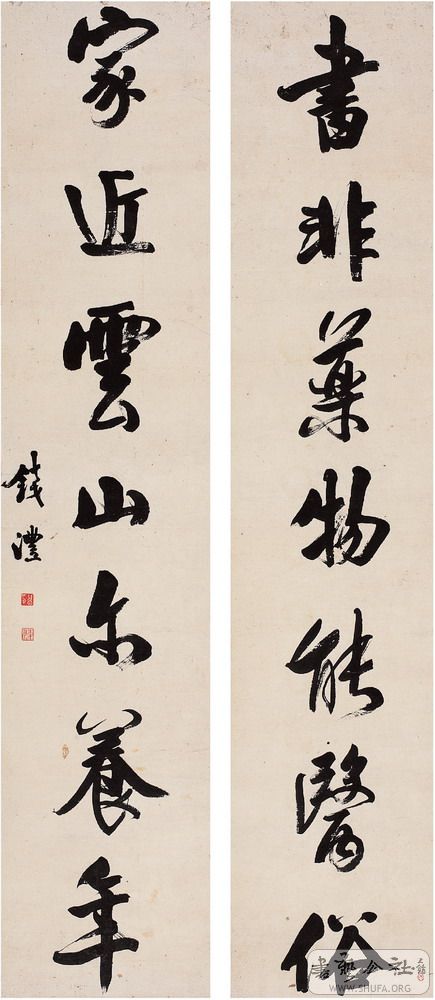 書非藥物能醫俗
家近雲山亦養年
錢灃
WWW.SHUFA.ORG